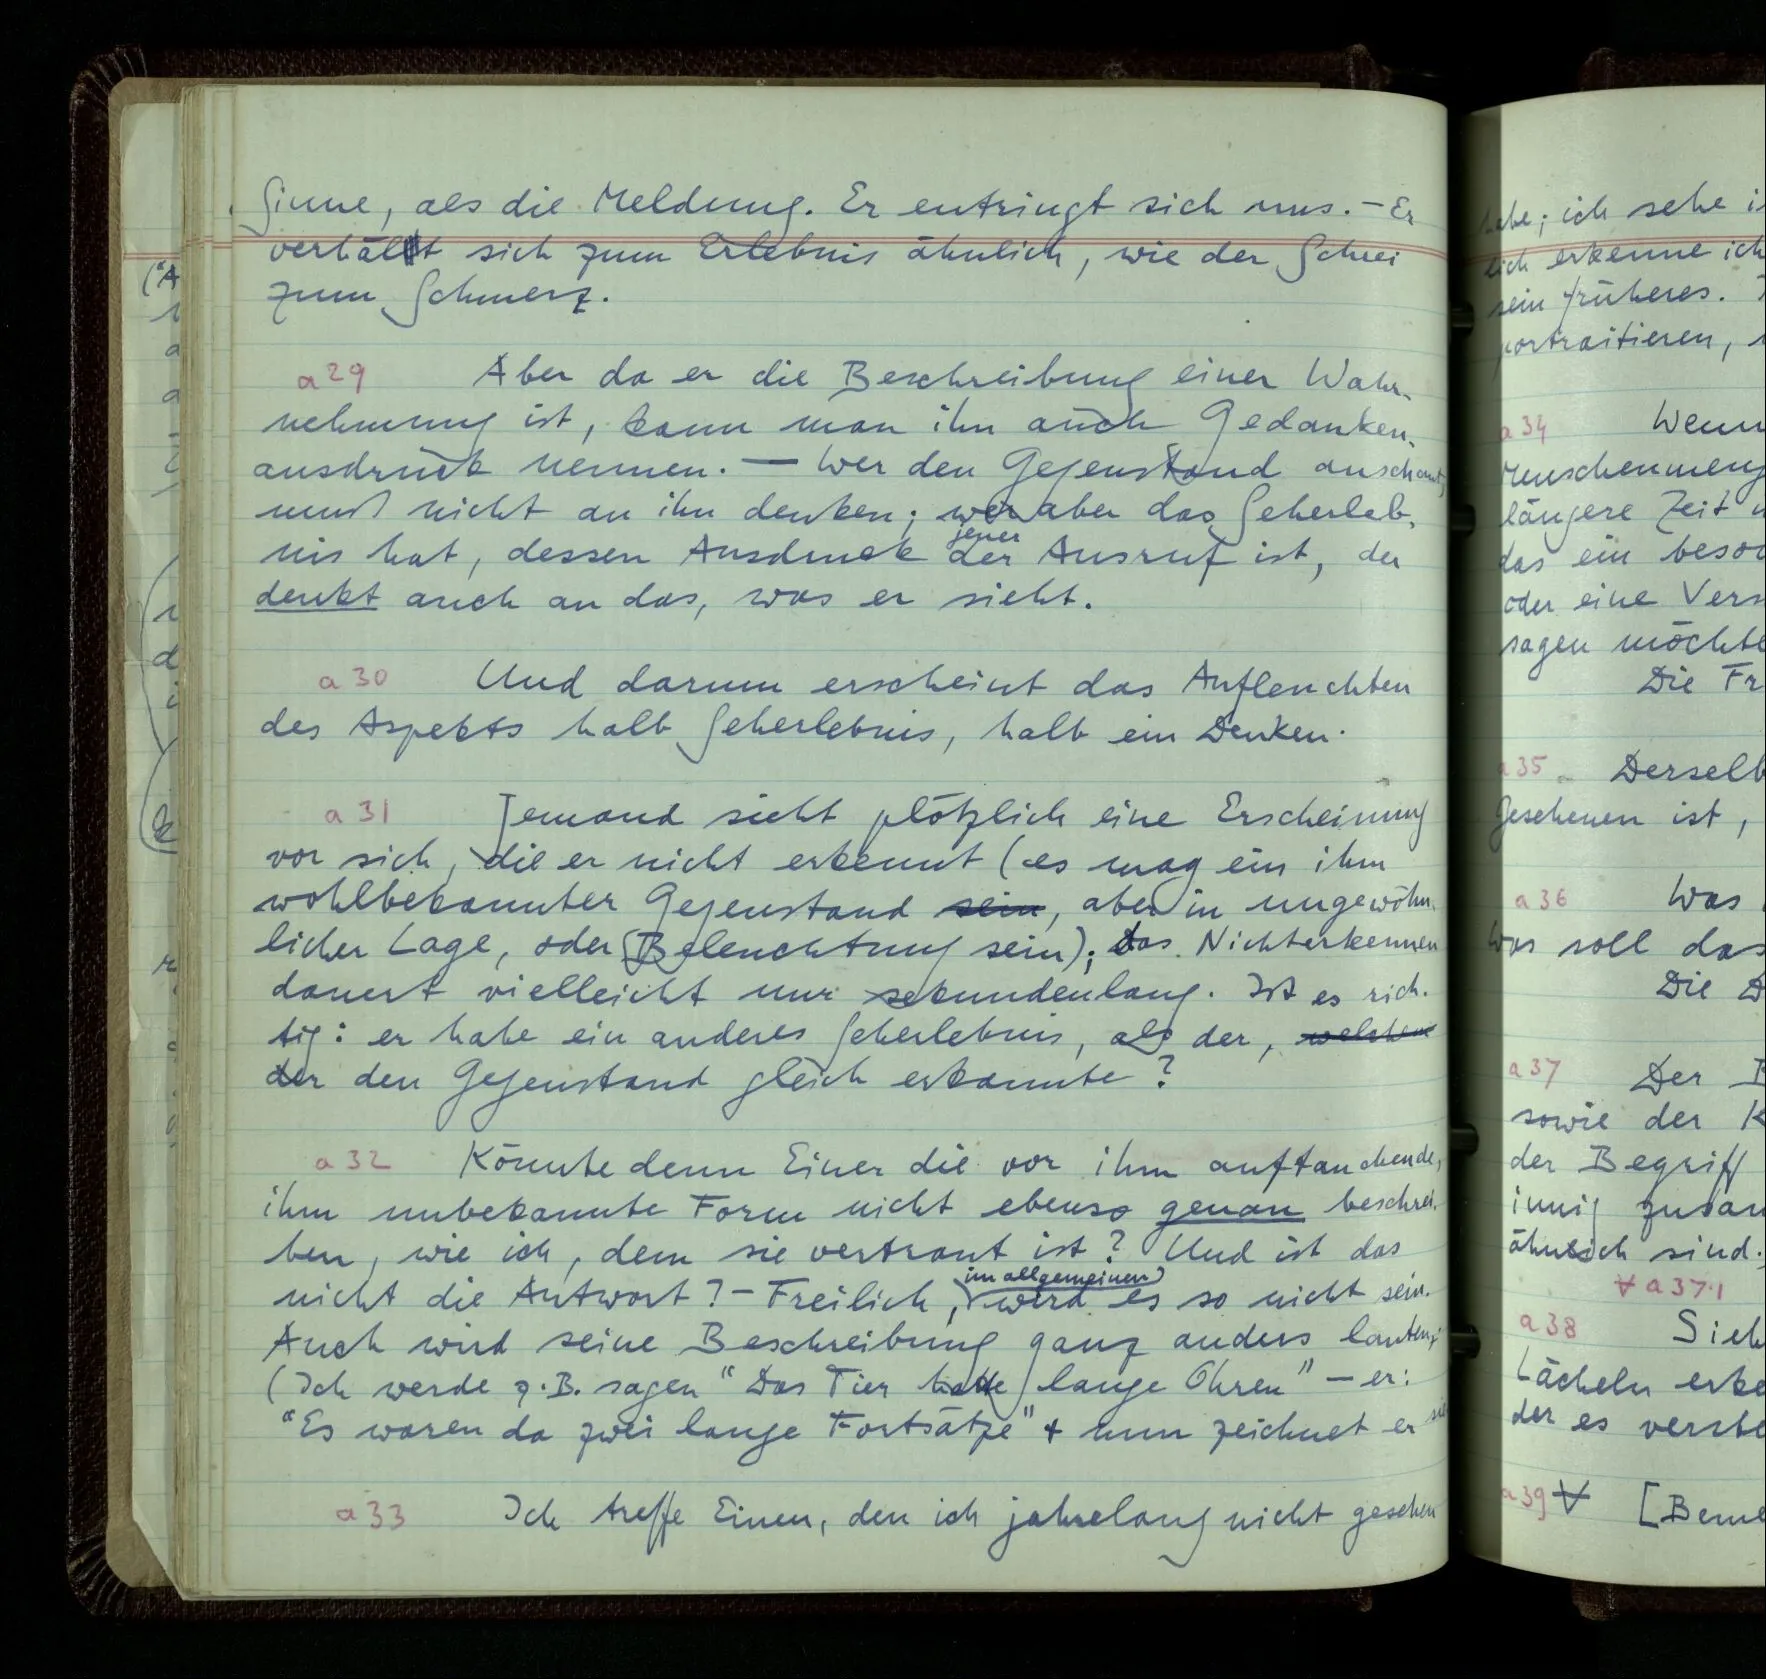 Sinne, als die Meldung. Er entringt sich uns. – Er
verhält sich zum Erlebnis ähnlich, wie der Schrei
zum Schmerz.
a 29 Aber da er die Beschreibung einer Wahr-
nehmung ist, kann man ihn auch Gedanken-
ausdruck nennen. — Wer den Gegenstand anschaut,
muß nicht an ihn denken; wer aber das Seherleb-
jener
nis hat, dessen Ausdruck der Ausruf ist, der
denkt auch an das, was er sieht.
a 30 Und darum erscheint das Aufleuchten
des Aspekts halb Seherlebnis, halb ein Denken.
a 31 Jemand sieht plötzlich eine Erscheinung
vor sich, die er nicht erkennt (es mag ein ihm
wohlbekannter Gegenstand sein, aber in ungewöhn-
licher Lage, oder Beleuchtung sein); das Nichterkennen
dauert vielleicht nur sekundenlang. Ist es rich-
tig: er habe ein anderes Seherlebnis, als der, welcher
der den Gegenstand gleich erkannte?
a 32 Könnte denn Einer die vor ihm auftauchende,
ihm unbekannte Form nicht ebenso genau beschrei-
ben, wie ich, dem sie vertraut ist? Und ist das
im allgemeinen
nicht die Antwort? – Freilich, wird es so nicht sein.
Auch wird seine Beschreibung ganz anders lauten.
(Ich werde z.B. sagen "Das Tier hatte lange Ohren" – er:
"Es waren da zwei lange Fortsätze" + nun zeichnet er sie
a 33 Ich treffe Einen, den ich jahrelang nicht gesehen
habe; ich sehe
erkenne ich
sein früheres.
portraitieren,
a 34 Wenn
längere Zeit
das ein
oder eine
sagen möchte
Die
a 35
Gesehenen ist,
a 36 Was
Was soll das
Die
a 37 Der
sowie der
der Begriff
innig
ähnlich sind.
∀ a 37.1
a 38
Lächeln
der es
a 39 ∀ [